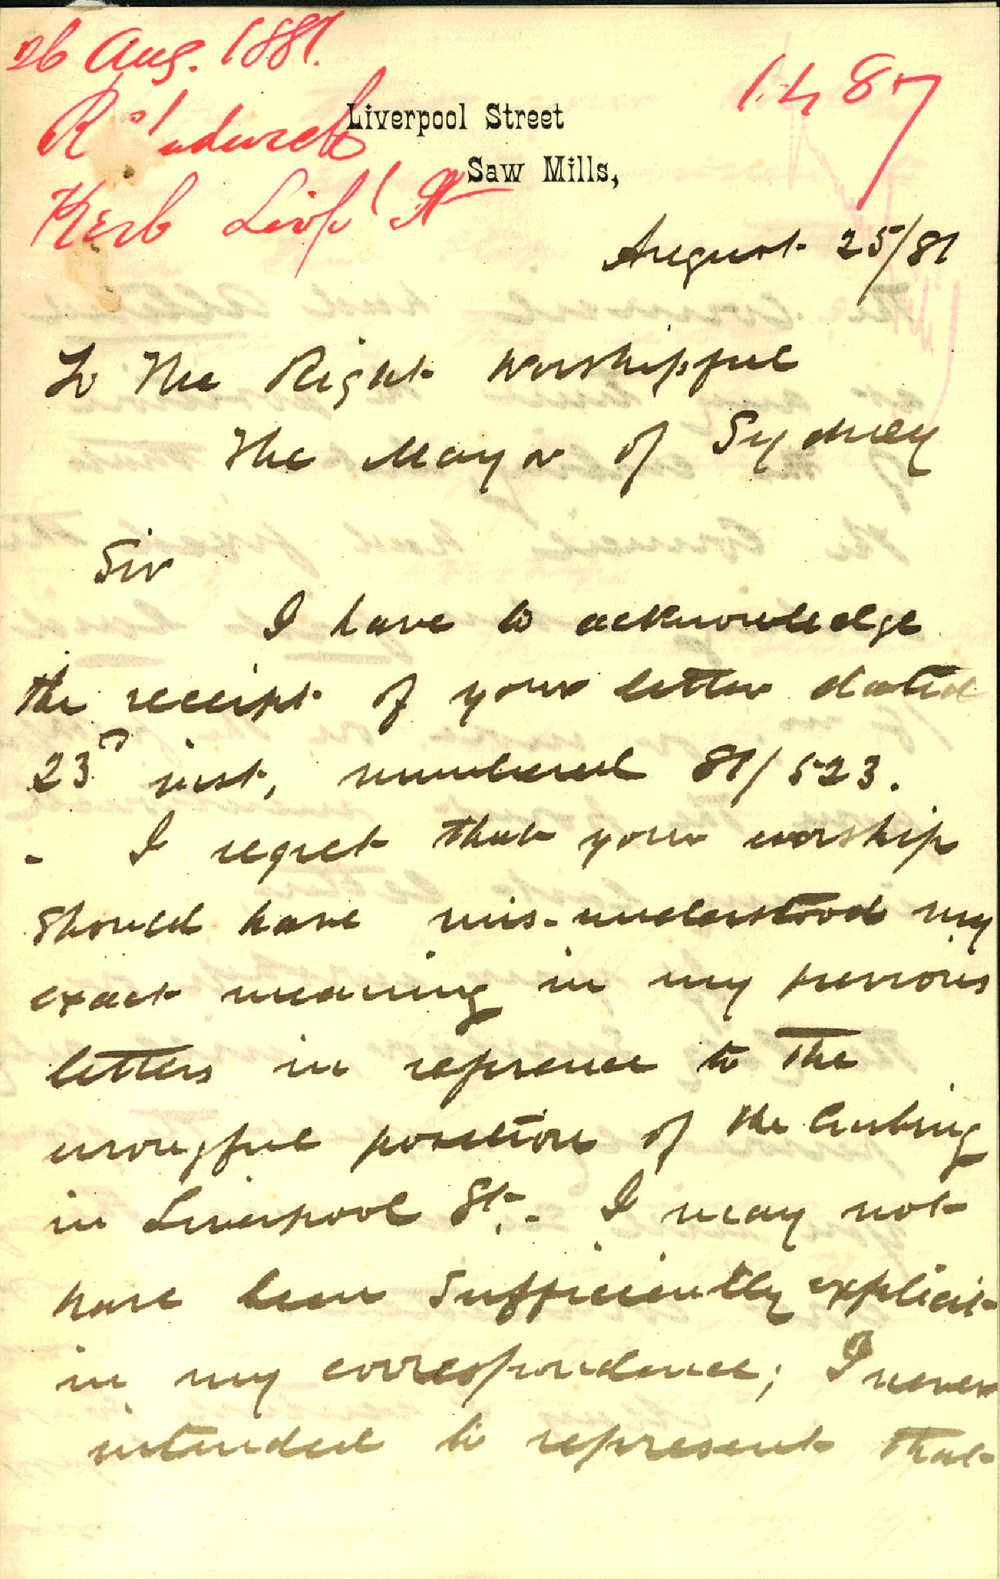 26 Aug. 1881.
1487
Liverpool Street
Saw Mills,
Kerb Livpl St
August 25/81
To The Right Worshipful
The Mayor of Sydney
Sir
I have to acknowledge
the receipt of your letter dated
23d inst, numbered 81/523.
- I regret that your worship
should have mis-understood my
exact meaning in my previous
letters in refrence to the
wrongful position of the Curbing
in Liverpool St,- I may not
have been sufficiently explicit
in my correspondence; I never
intended to represent that